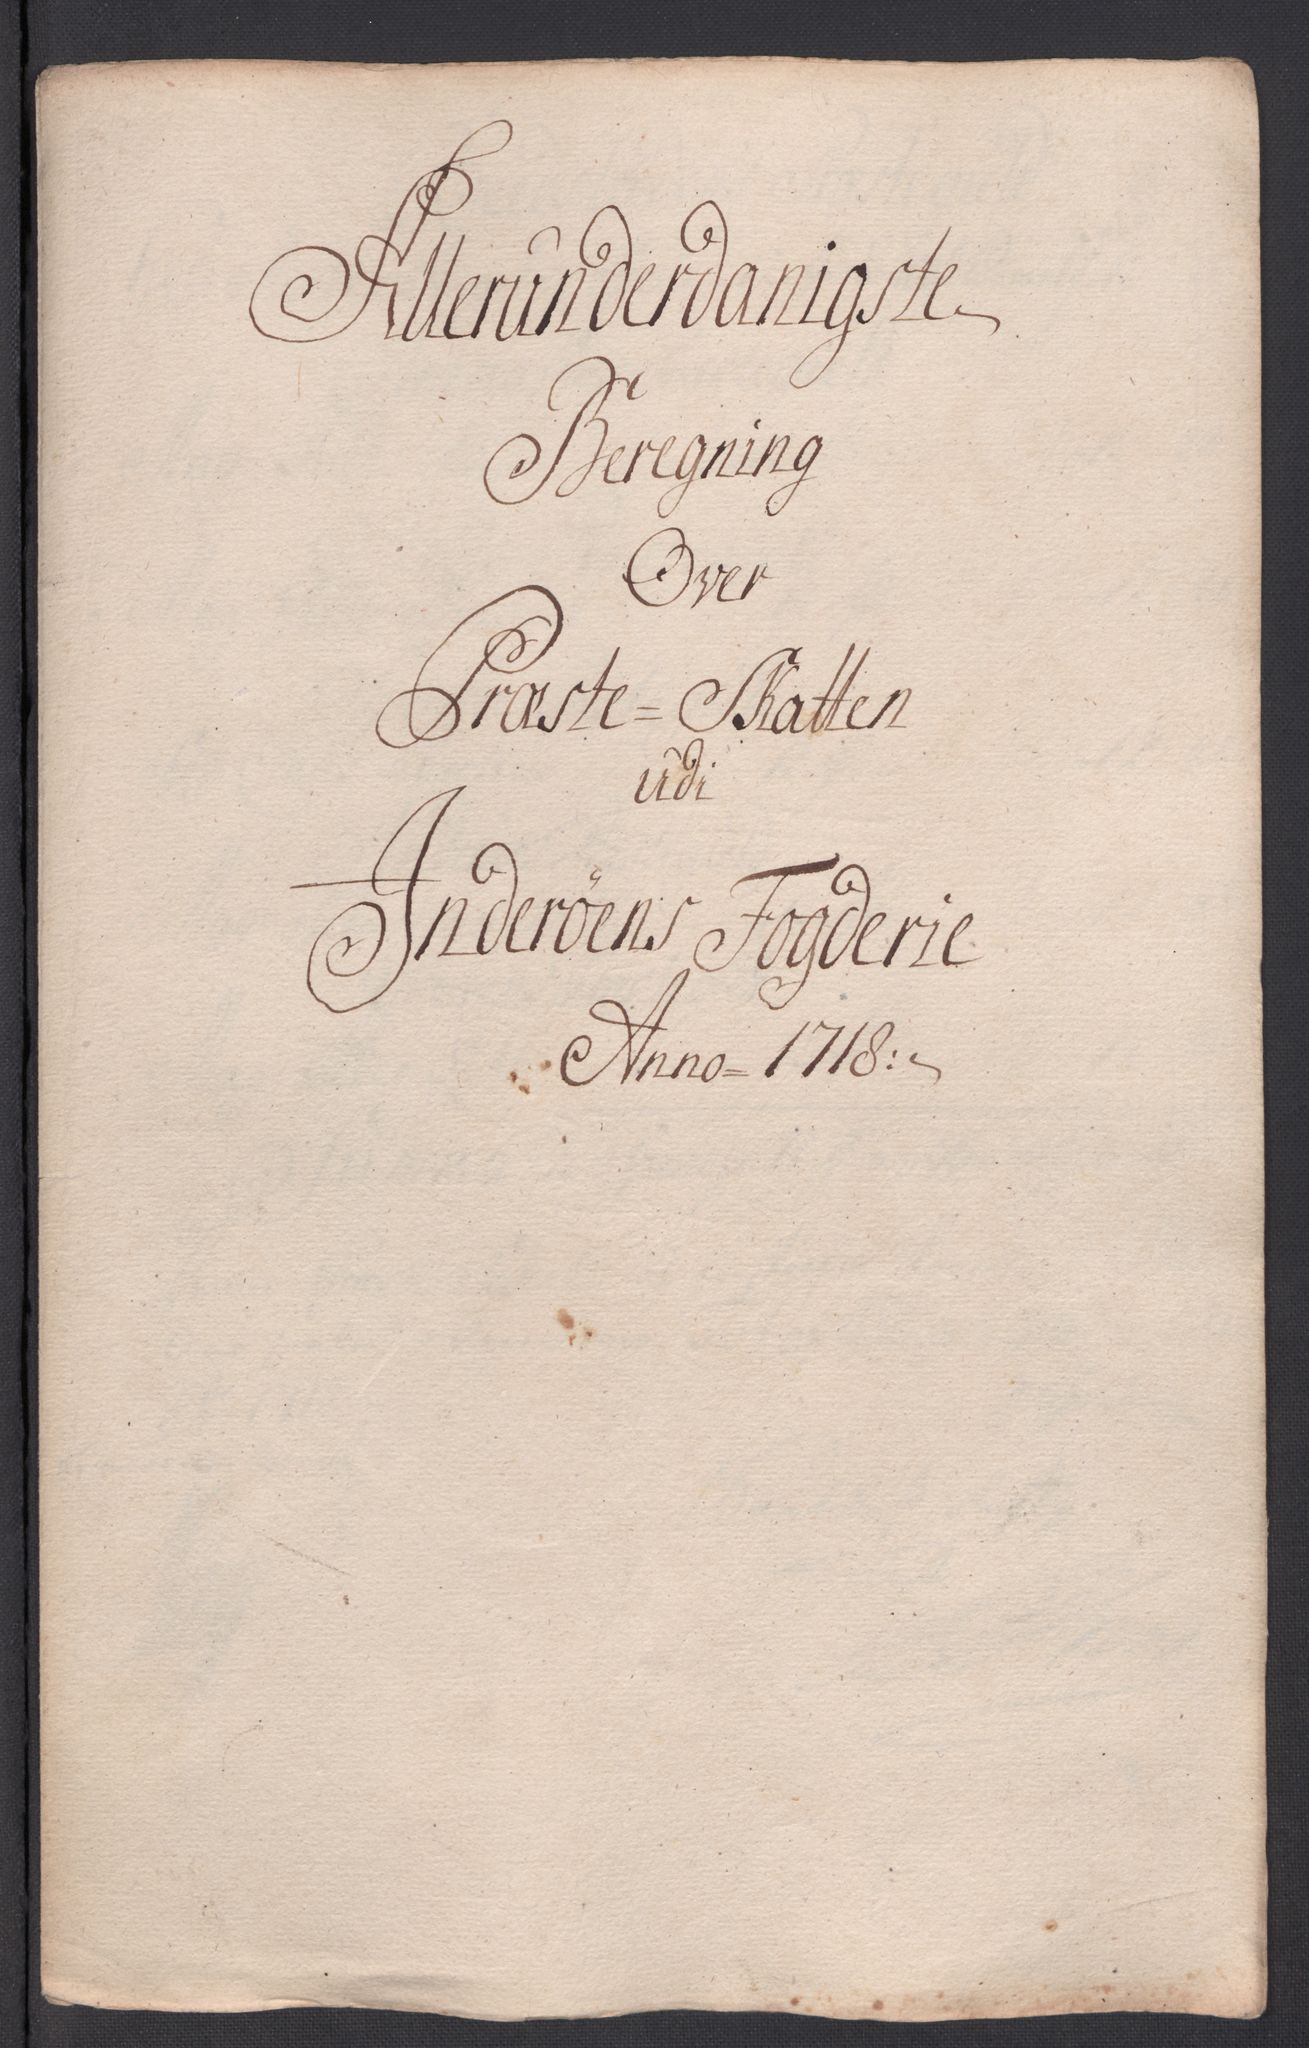 Allerunderdanigste
Beregning
Over
Præste= Skatten
udi
Inderöens Fogderie
Anno= 1718: